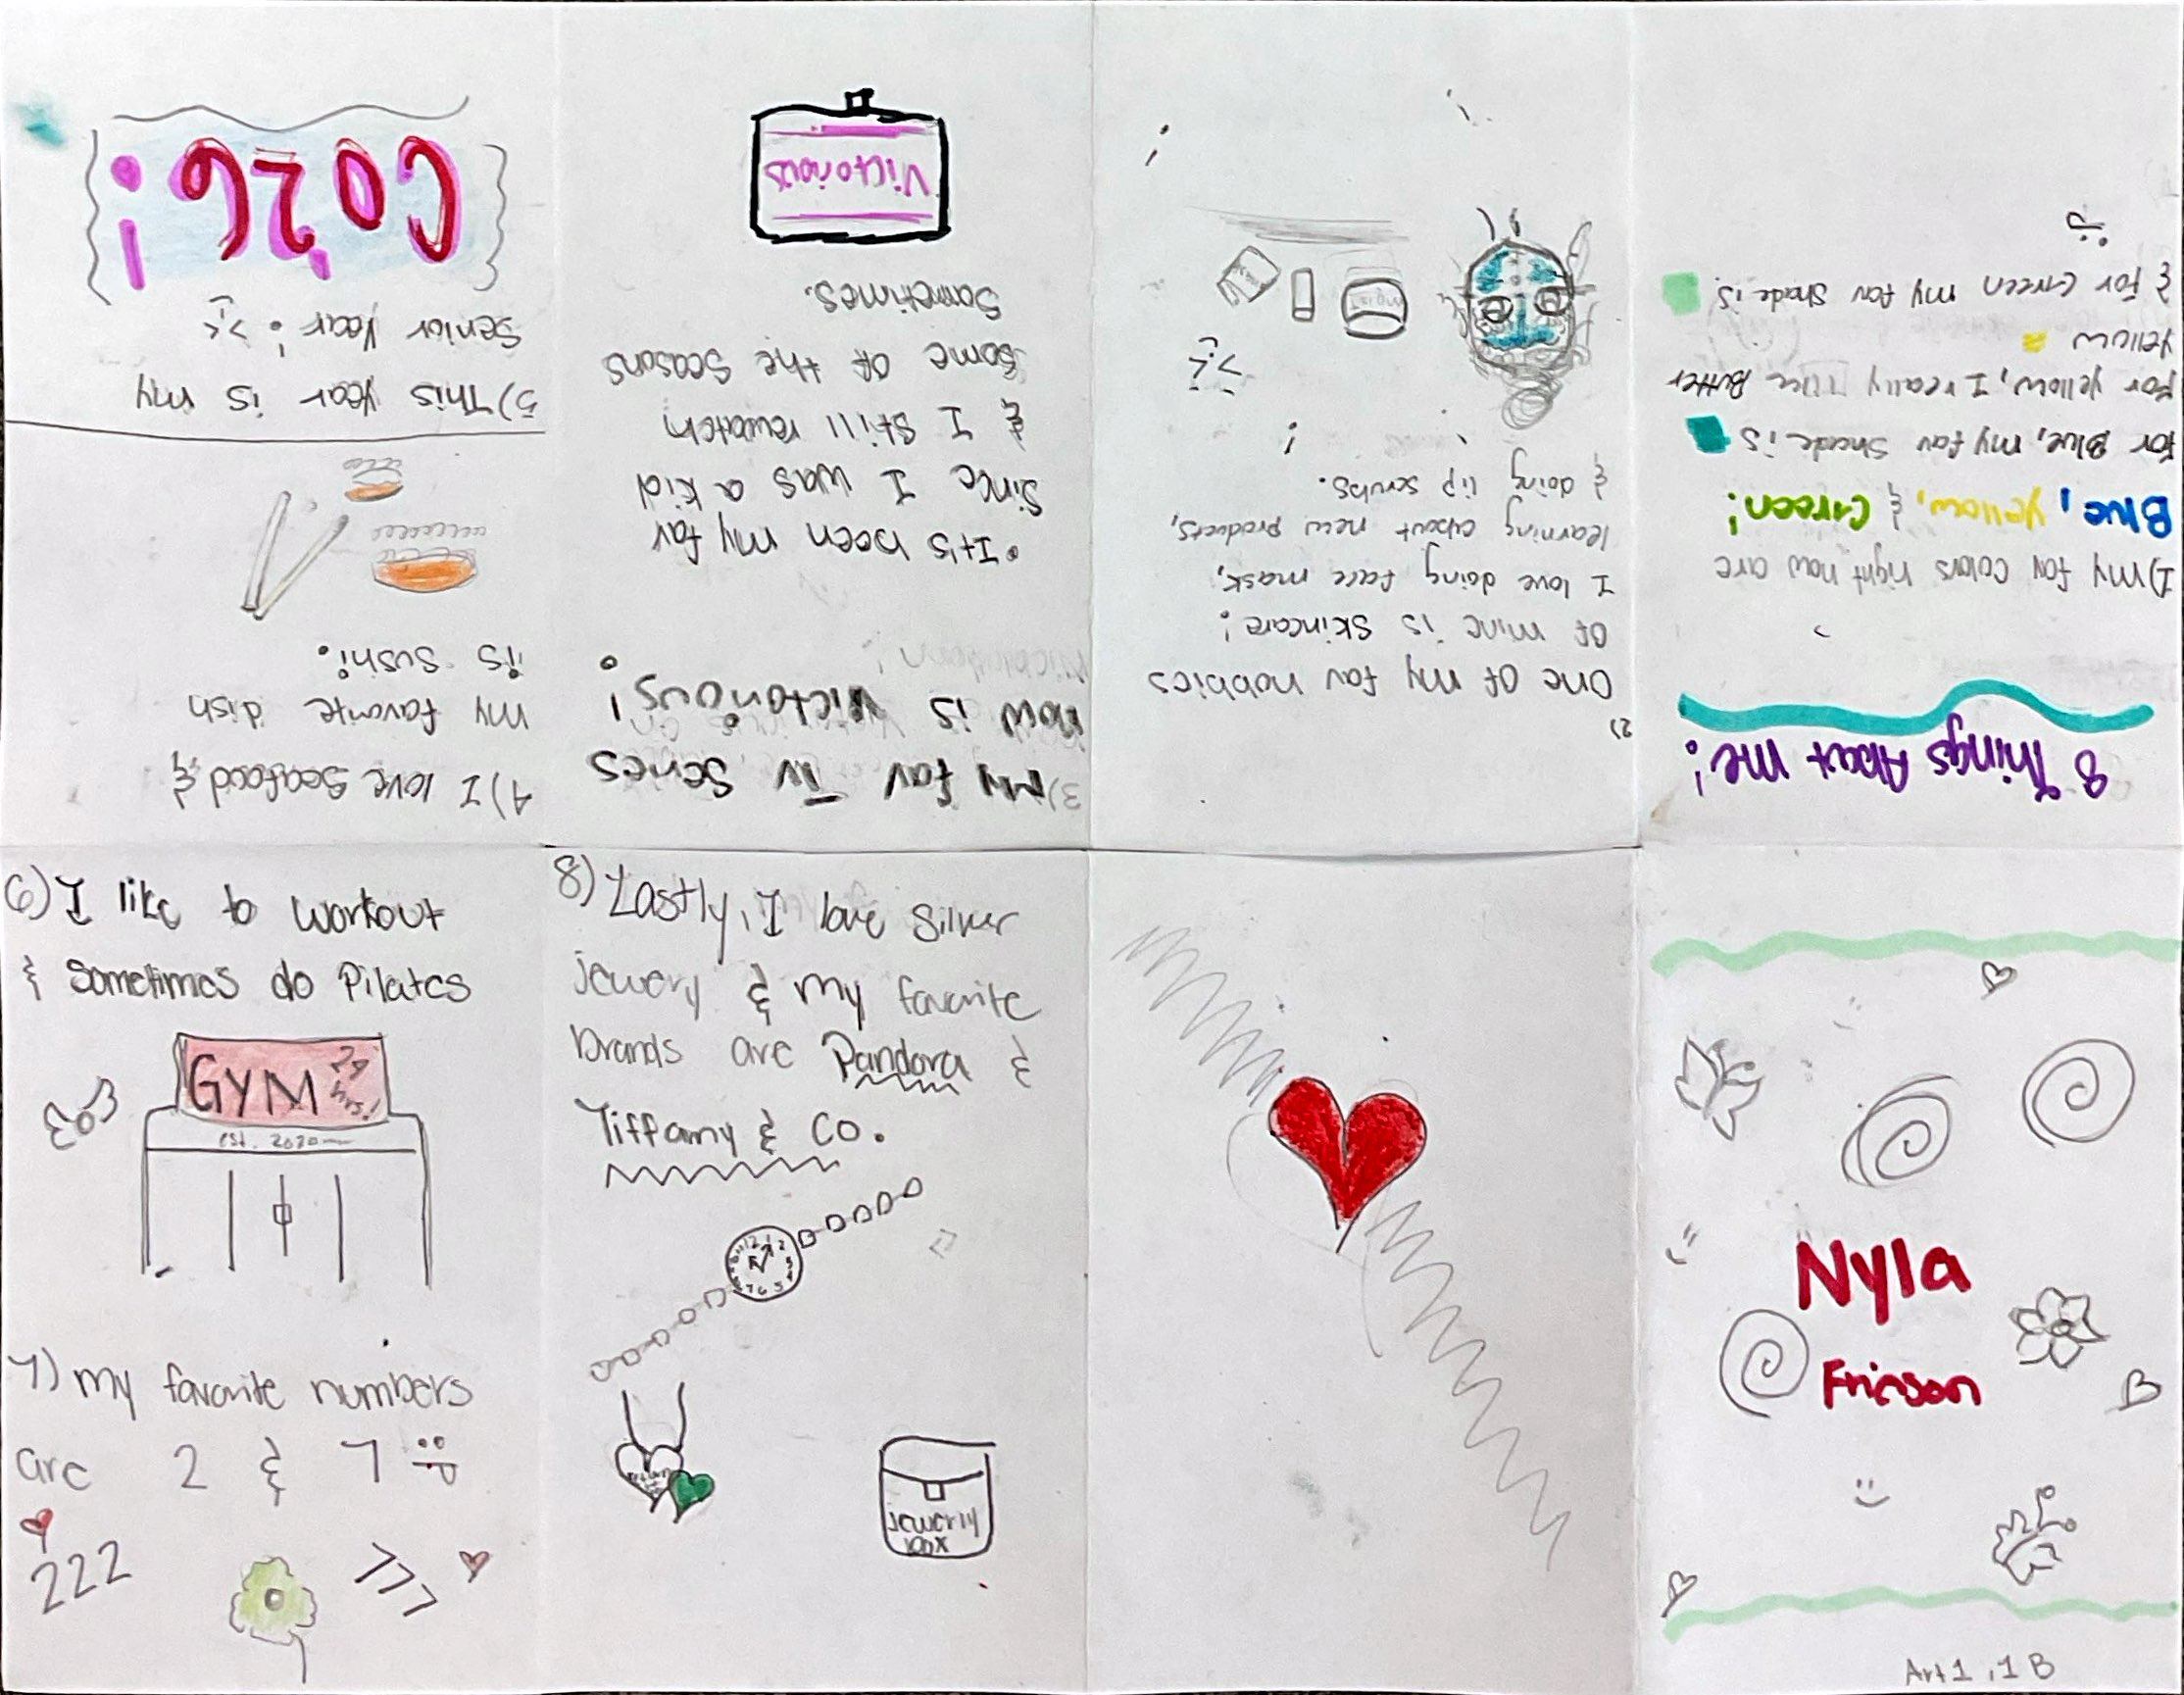 Nyla
Frierson
Art 1, 1B
8 Things About me!
1) my fav colors right now are
Blue, yellow, & Green!
For Blue, my fav shade is
For yellow, I really like Butter
yellow
& for Green my fav shade is
:)
2)
One of my fav hobbies
of mine is skincare!
I love doing face mask,
learning about new products,
& doing lip scrubs.
3) My fav TV series
now is Victorious!
• It's been my fav
since I was a kid
& I still rewatch
some of the seasons
sometimes.
Victorious
4) I love seafood &
my favorite dish
is sushi.
5) This year is my
senior year!
Co'26!
6) I like to workout
& sometimes do Pilates
GYM 24
hrs!
est. 2020
7) my favorite numbers
are 2 & 7
222
777
8) Lastly, I love silver
jewery & my favorite
brands are Pandora &
Tiffamy & Co.
jewerly
box